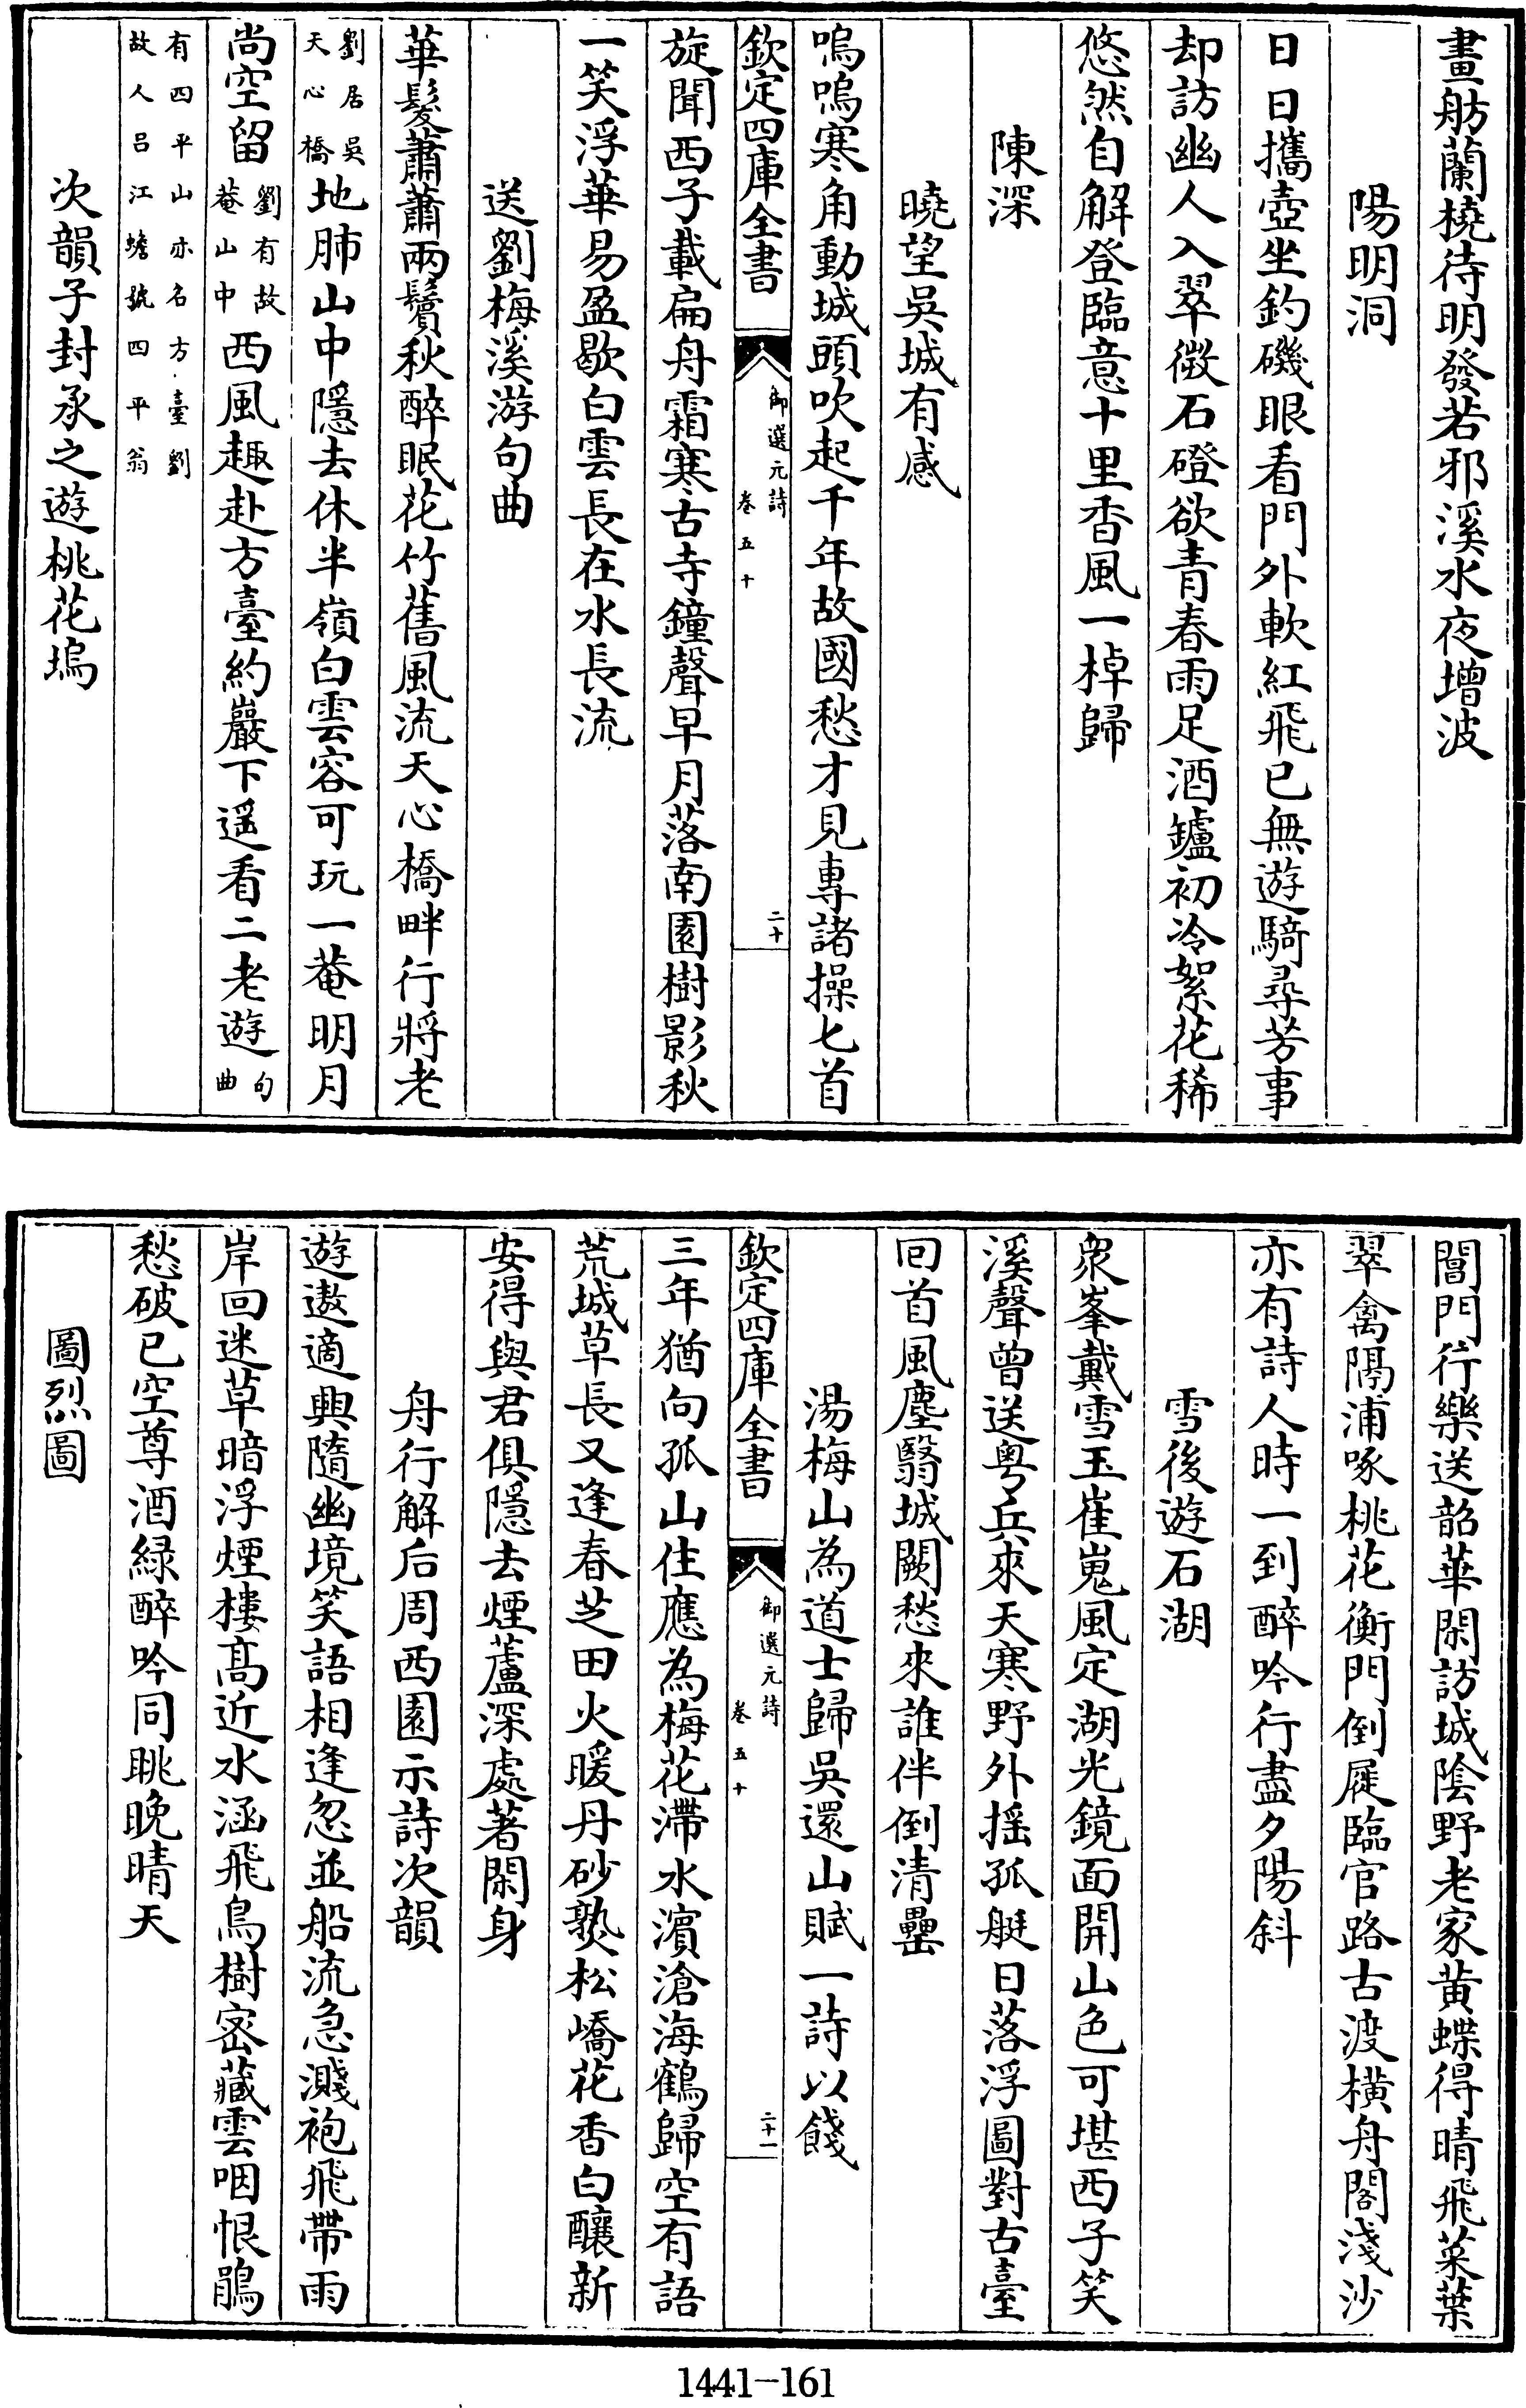 畫舫蘭橈待明發若邪溪水夜增波
陽明洞
日日攜壺坐釣磯眼看門外軟紅飛已無遊騎尋芳事
却訪幽人入翠微石磴欲青春雨足酒鑪初冷絮花稀
悠然自解登臨意十里香風一棹歸
陳深
曉望吳城有感
嗚嗚寒角動城頭吹起千年故國愁才見專諸操匕首
欽定四庫全書
御選元詩
卷五十
二十
旋聞西子載扁舟霜寒古寺鐘聲早月落南園樹影秋
一笑浮華易盈歇白雲長在水長流
送劉梅溪游句曲
華髮蕭蕭兩鬢秋醉眠花竹舊風流天心橋畔行將老
劉居吳
天心橋
地肺山中隱去休半嶺白雲容可玩一菴明月
尚空留
劉有故
菴山中
西風趣赴方臺約巖下遥看二老遊
句
曲
有四平山亦名方臺劉
故人呂江蟾號四平翁
次韻子封承之遊桃花塢
閶門行樂送韶華閑訪城陰野老家黄蝶得晴飛菜葉
翠禽隔浦啄桃花衡門倒屣臨官路古渡橫舟閣淺沙
亦有詩人時一到醉吟行盡夕陽斜
雪後遊石湖
衆峯戴雪玉崔嵬風定湖光鏡面開山色可堪西子笑
溪聲曾送粤兵來天寒野外摇孤艇日落浮圖對古臺
回首風塵翳城闕愁來誰伴倒清罍
湯梅山為道士歸吳還山賦一詩以餞
欽定四庫全書
御選元詩
卷五十
二十一
三年猶向孤山住應為梅花滯水濱滄海鶴歸空有語
荒城草長又逢春芝田火暖丹砂熟松嶠花香白釀新
安得與君俱隱去煙蘆深處著閑身
舟行解后周西園示詩次韻
遊遨適興隨幽境笑語相逢忽並船流急濺袍飛帶雨
岸回迷草暗浮煙樓高近水涵飛鳥樹密藏雲咽恨鵑
愁破已空尊酒緑醉吟同眺晚晴天
圖烈圖
1441-161